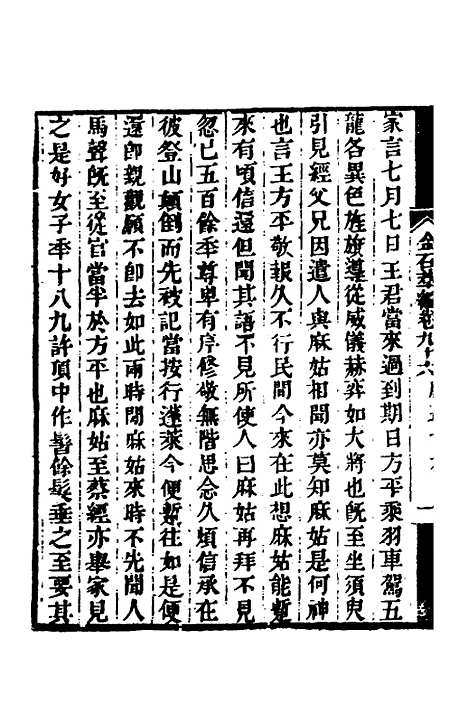 金石萃編卷九十六
家言七月七日王君當來過到期日方平乘羽車駕五
龍各異色旌旗導從威儀赫弈如大將也既至坐須臾
引見經父兄因遣人與麻姑相聞亦莫知麻姑是何神
也言王方平敬報久不行民間今來在此想麻姑能暫
來有頃信還但聞其語不見所使人曰麻姑再拜不見
忽已五百餘年尊卑有序修敬無階思念久煩信承在
彼登山顛倒而先被記當按行蓬萊今便暫往如是便
還即親觀願不即去如此兩時閒麻姑來時不先聞人
馬聲既至從官當半於方平也麻姑至蔡經亦舉家見
之是好女子年十八九許頂中作髻餘髮垂之至要其